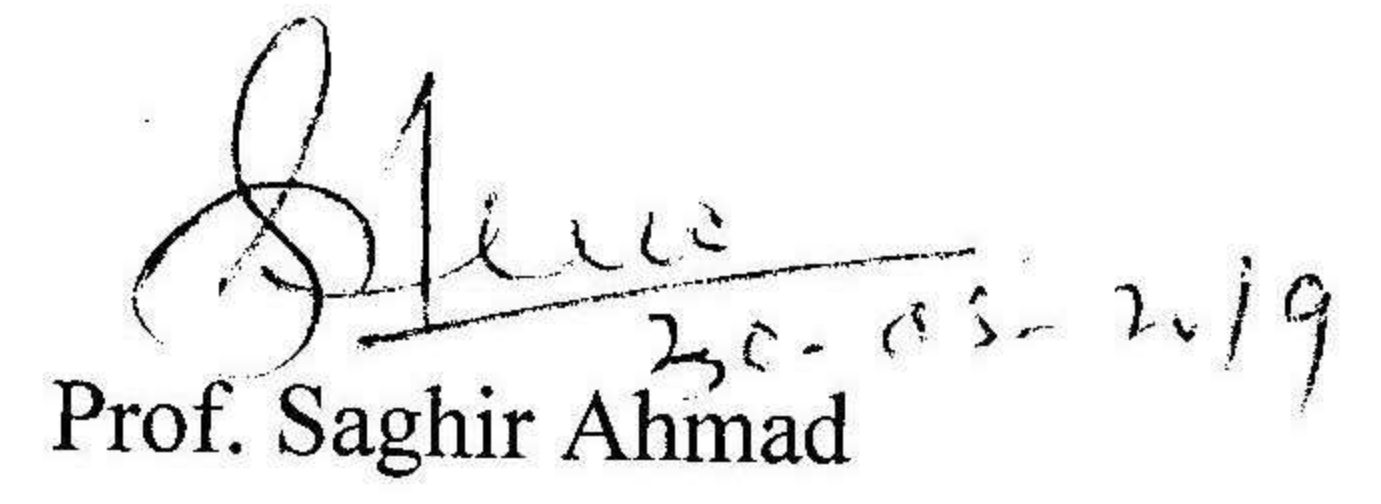 30-05-2019
Prof. Saghir Ahmad